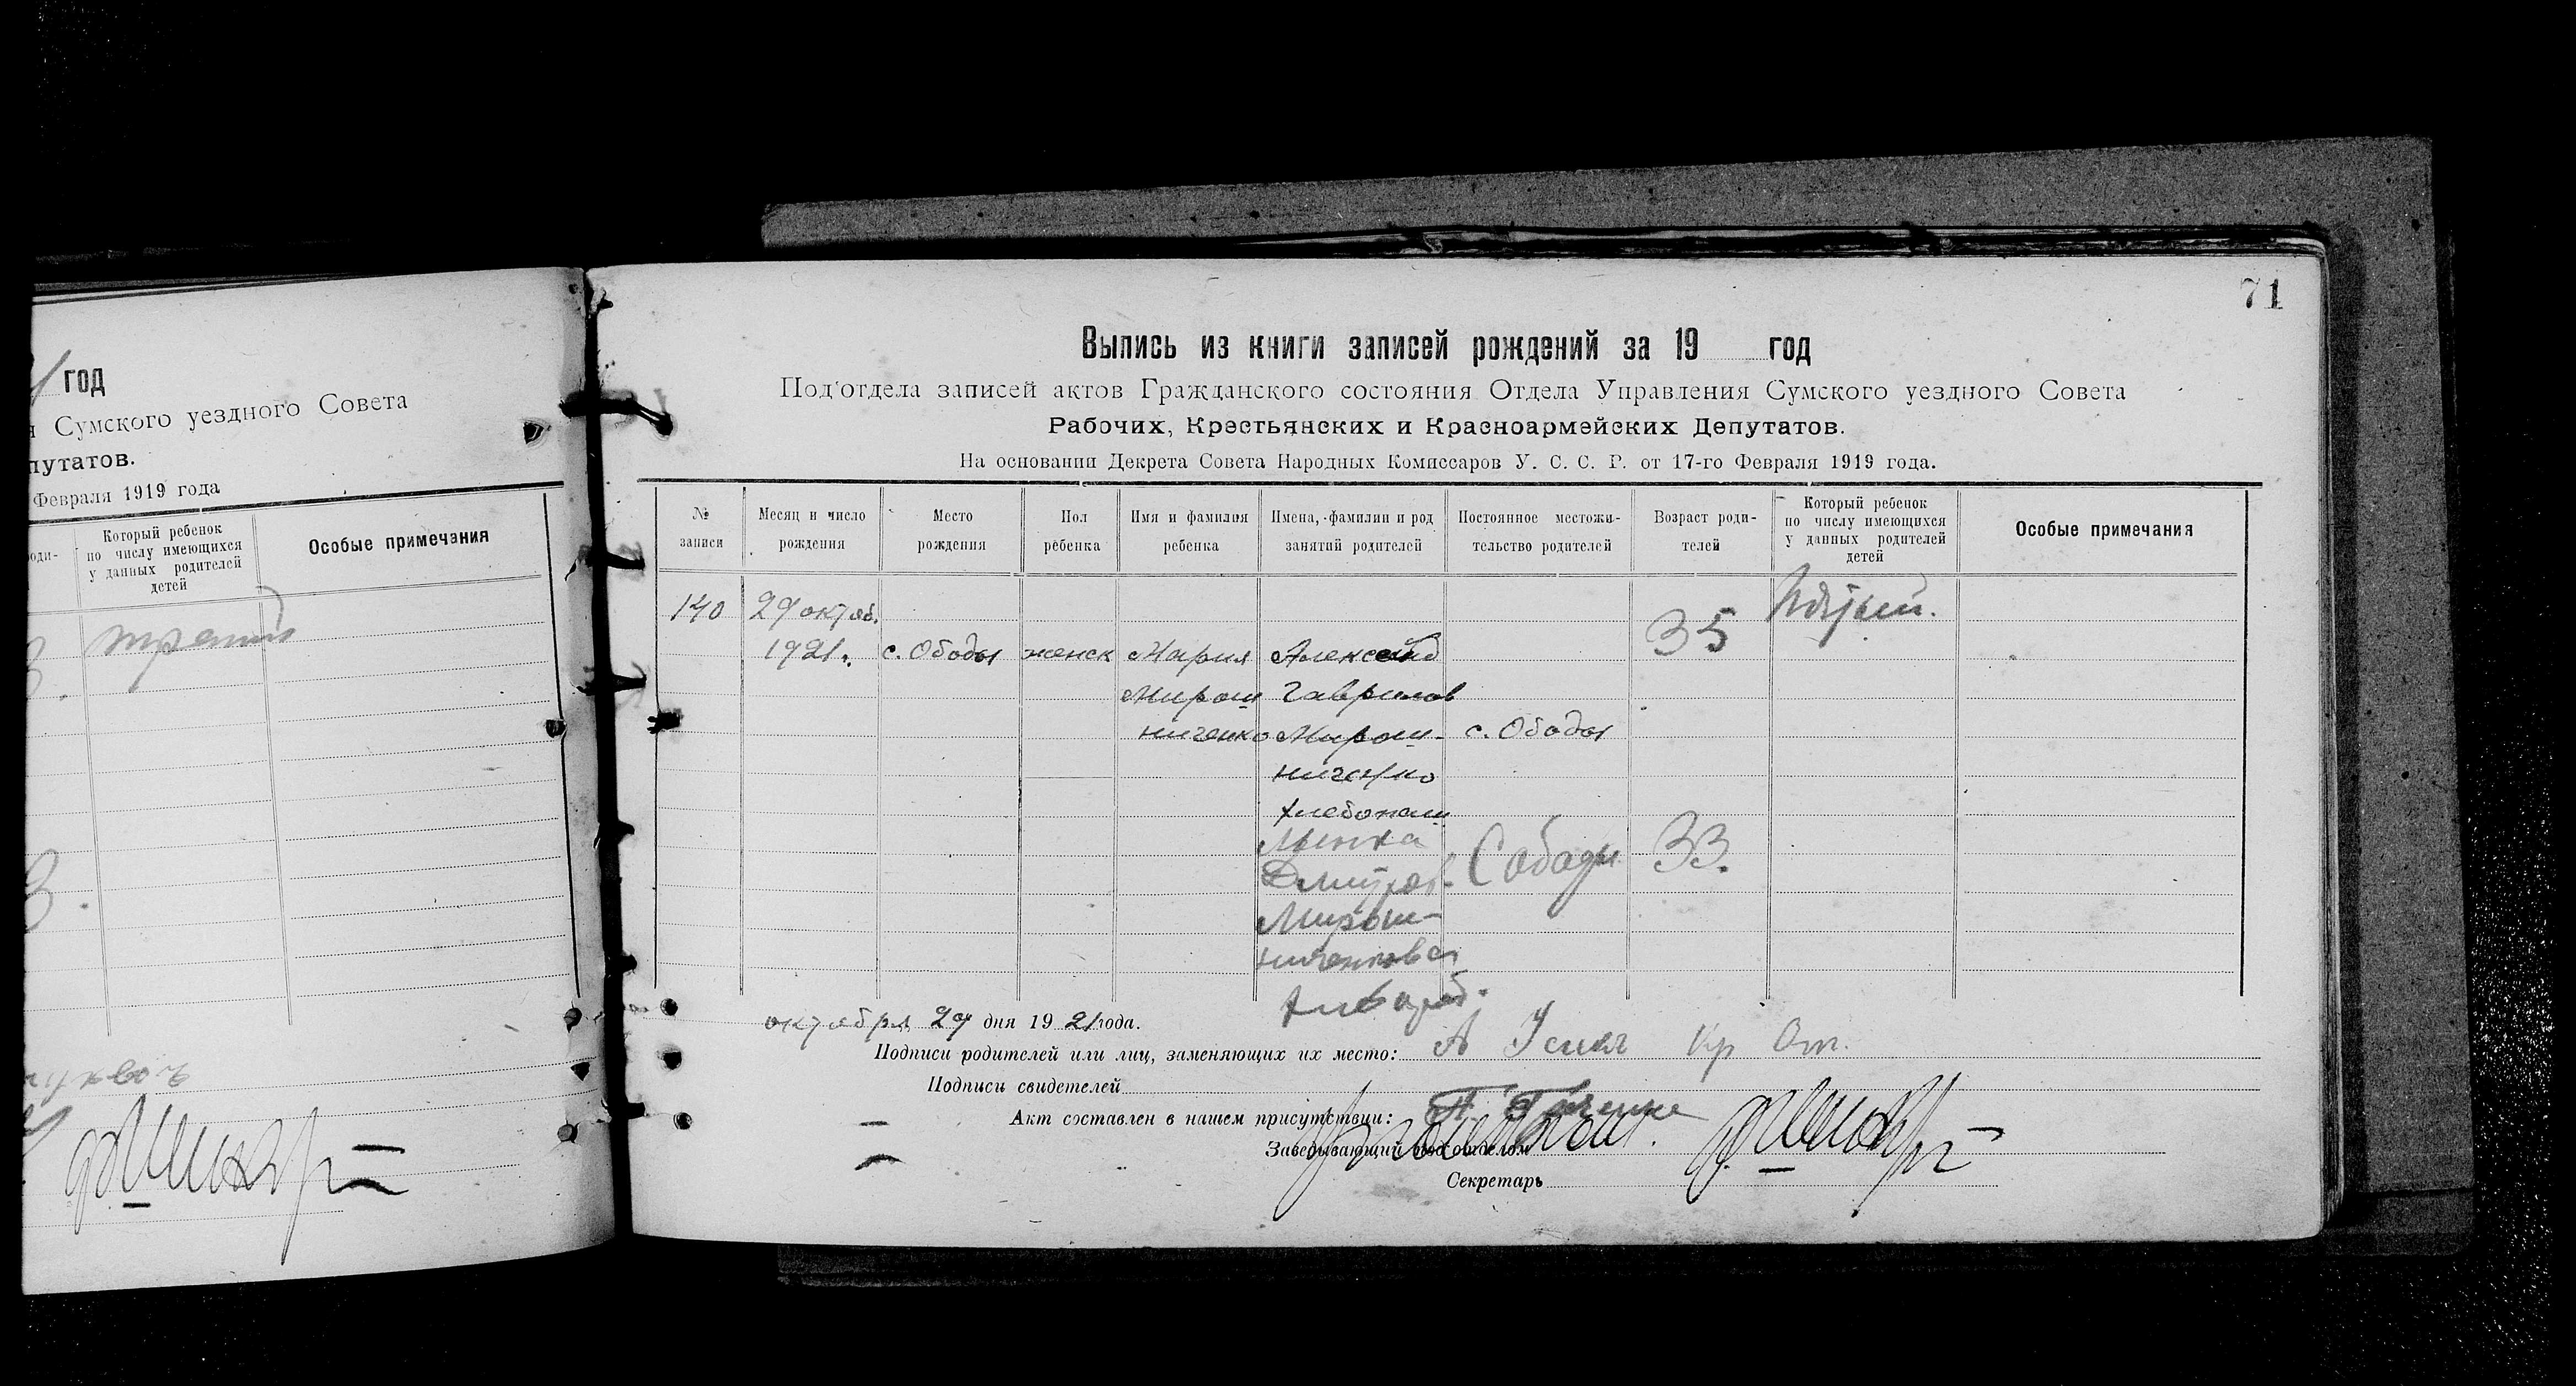 год
Сумского уездного Совета
путатов.
Февраля 1919 года
оди-
Который ребенок
по числу имеющихся
у данных родителей
детей
Особые примечания
71
Выпись из книги записей рождений за 19 год
Под'отдела записей актов Гражданского состояния Отдела Управления Сумского уездного Совета
Рабочих, Крестьянских и Красноармейских Депутатов.
На основании Декрета Совета Народных Комиссаров У. С. С. Р. от 17-го Февраля 1919 года.
№
записи
Месяц и число
рождения
Место
рождения
Пол
ребенка
Имя и фамилия
ребенка
Имена, фамилии и род
занятий родителей
Постоянное местожи-
тельство родителей
Возраст роди-
телей
Который ребенок
по числу имеющихся
у данных родителей
детей
Особые примечания
140
29 октяб.
1921.
с. Ободы
женск
Мария
Мирош
ниченко
Гаврилов
Мирош-
ниченко
хлебопаш
с. Ободы
35
Дмитров.
Мирош-
ниченкова
33.
октября 29 дня 1921 года.
Подписи родителей или лиц, заменяющих их место:
Подписи свидетелей
Акт составлен в нашем присутствии:
Заведывающий под'отделом
Секретарь